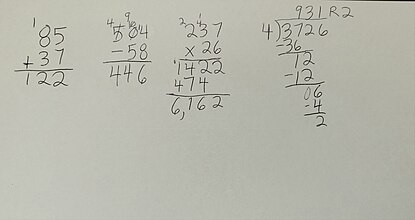 1
85
+ 37
122
4 9
504
- 58
446
2 1 4
237
x 26
1422
474
6,162
931 R2
4)3726
-36
12
-12
06
-4
2